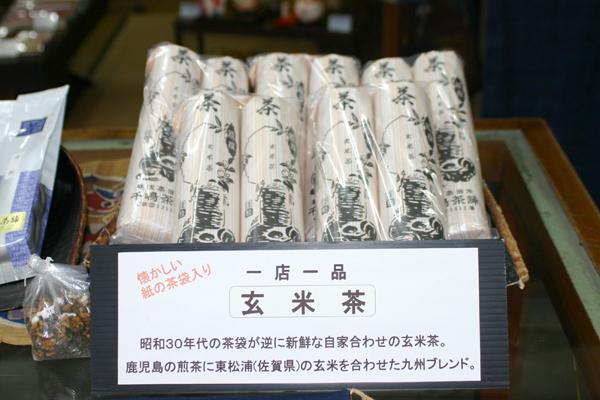 茶
茶
茶
茶
茶
茶
玄米茶
玄米茶
懐かしい
紙の茶袋入り
一店一品
玄米茶
昭和30年代の茶袋が逆に新鮮な自家合わせの玄米茶。
鹿児島の煎茶に東松浦(佐賀県)の玄米を合わせた九州ブレンド。